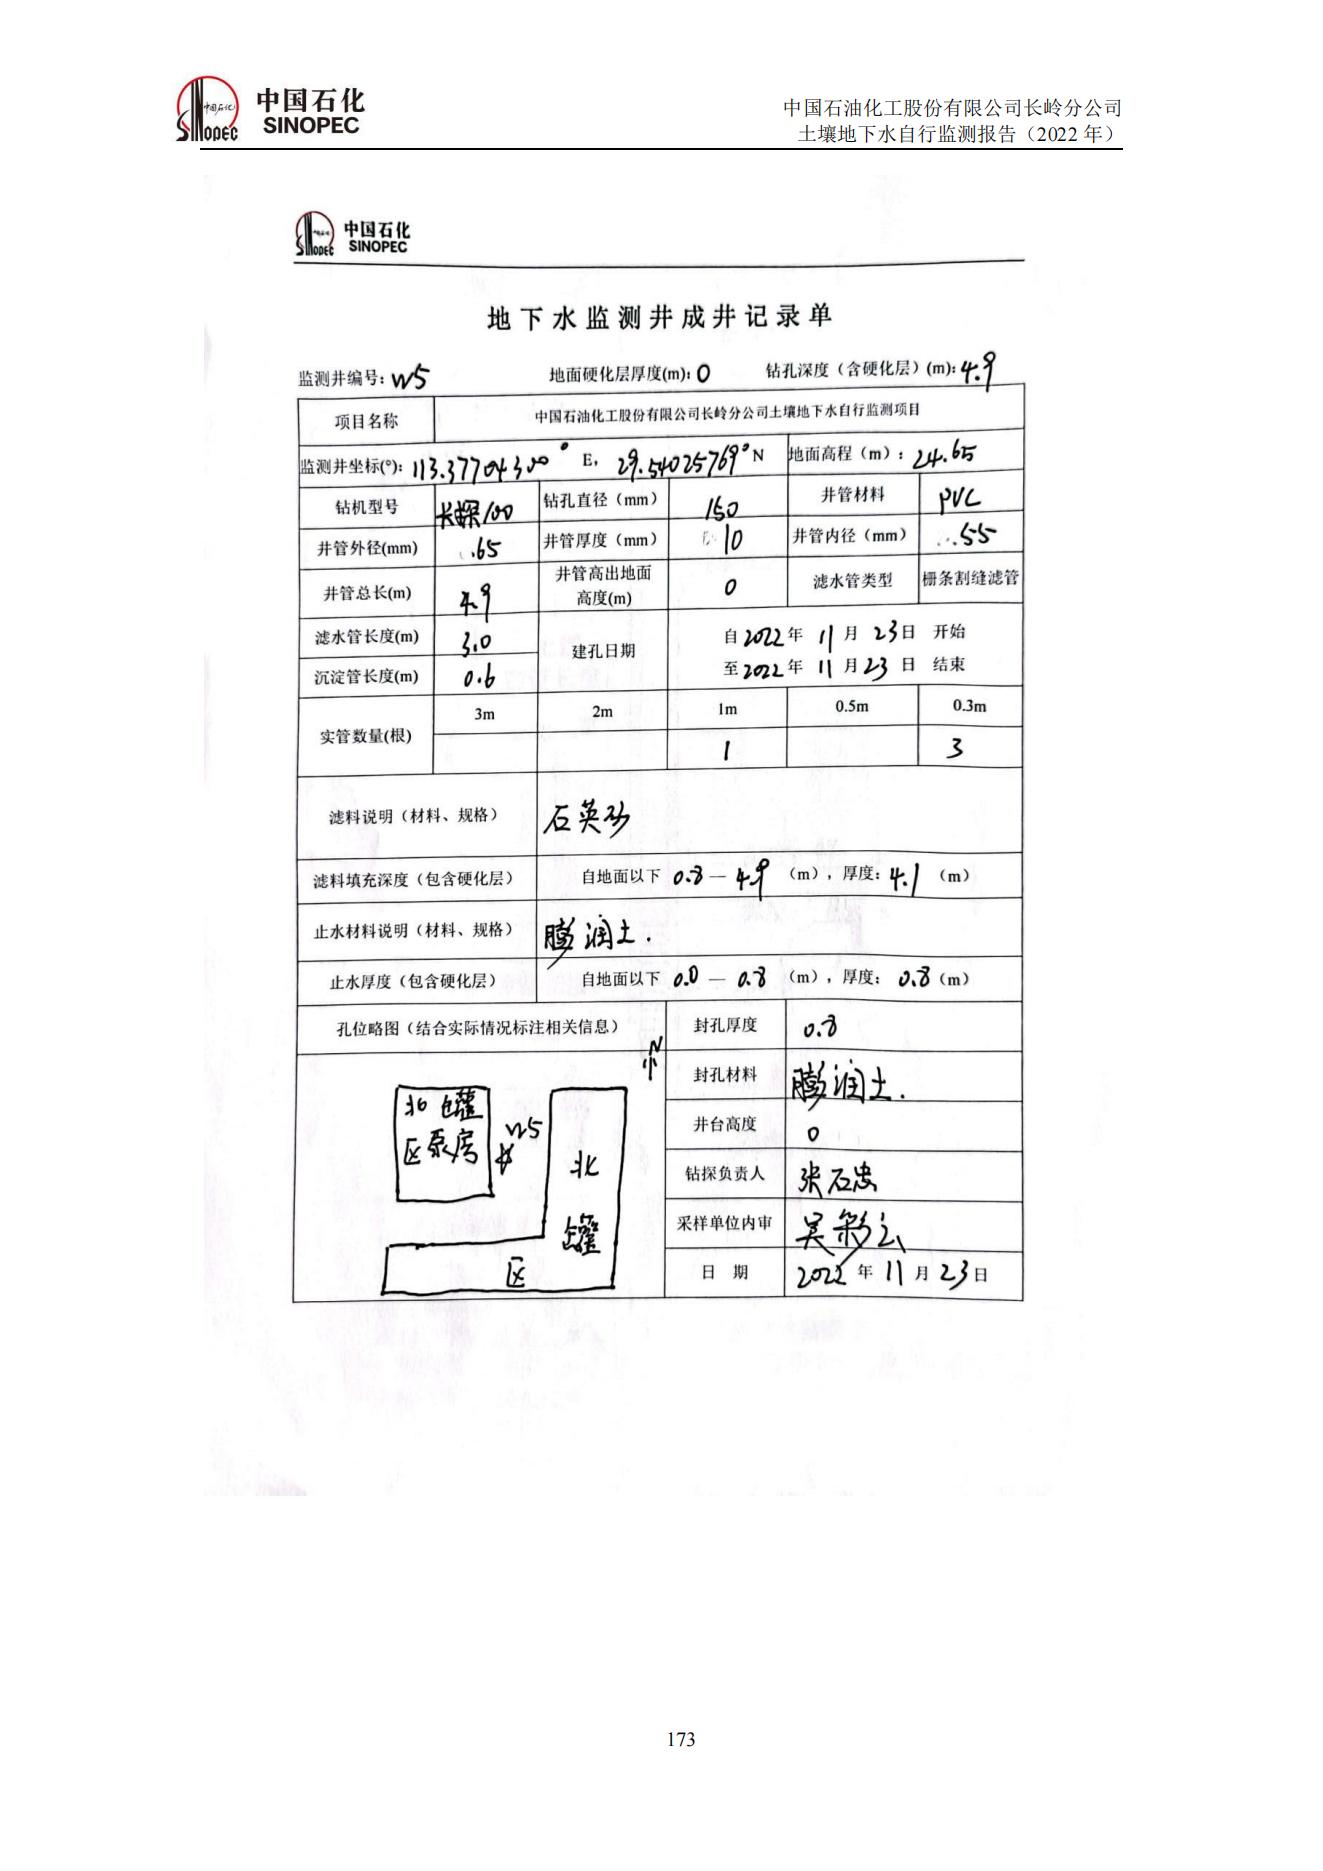 中国石化
SINOPEC
中国石油化工股份有限公司长岭分公司
土壤地下水自行监测报告（2022 年）
中国石化
SINOPEC
地下水监测井成井记录单
监测井编号: W5 地面硬化层厚度(m): 0 钻孔深度（含硬化层）(m): 4.9
项目名称 中国石油化工股份有限公司长岭分公司土壤地下水自行监测项目
监测井坐标(°): 113.37704300° E, 29.54025769° N 地面高程（m）: 24.65
钻机型号 长探100 钻孔直径（mm） 150 井管材料 PVC
井管外径(mm) 65 井管厚度（mm） 10 井管内径（mm） 55
井管总长(m) 4.9 井管高出地面高度(m) 0 滤水管类型 栅条割缝滤管
滤水管长度(m) 3.0 建孔日期 自2022年 11月 23日 开始
沉淀管长度(m) 0.6 至2022年 11月23日 结束
实管数量(根) 3m 2m 1m 0.5m 0.3m
1 3
滤料说明（材料、规格） 石英砂
滤料填充深度（包含硬化层） 自地面以下 0.8 — 4.9 （m）, 厚度: 4.1 （m）
止水材料说明（材料、规格） 膨润土.
止水厚度（包含硬化层） 自地面以下 0.0 — 0.8 （m）, 厚度: 0.8（m）
孔位略图（结合实际情况标注相关信息） 封孔厚度 0.8
N
封孔材料 膨润土.
井台高度 0
钻探负责人 张石忠
采样单位内审 吴彩云
日 期 2022年 11月 23日
北罐
区泵房
W5
北
罐
区
173